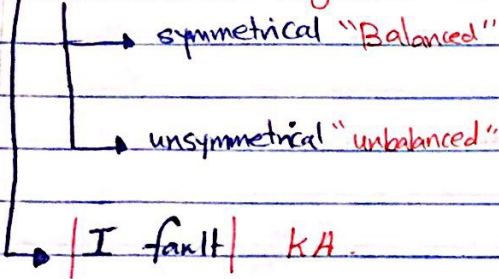 symmetrical "Balanced"
unsymmetrical "unbalanced"
|I fault| KA.